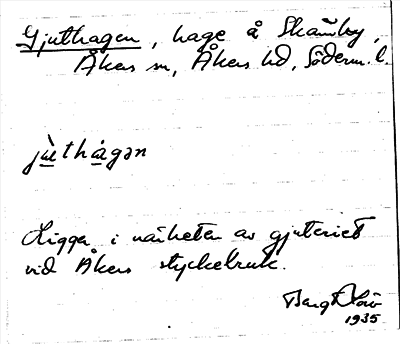 Gjuthagen, hage å Skämby,
Åkers sn, Åkers hd, Söderm. l.
jùthàgən
Ligger i närheten av gjuteriet
vid Åkers styckebruk.
1935